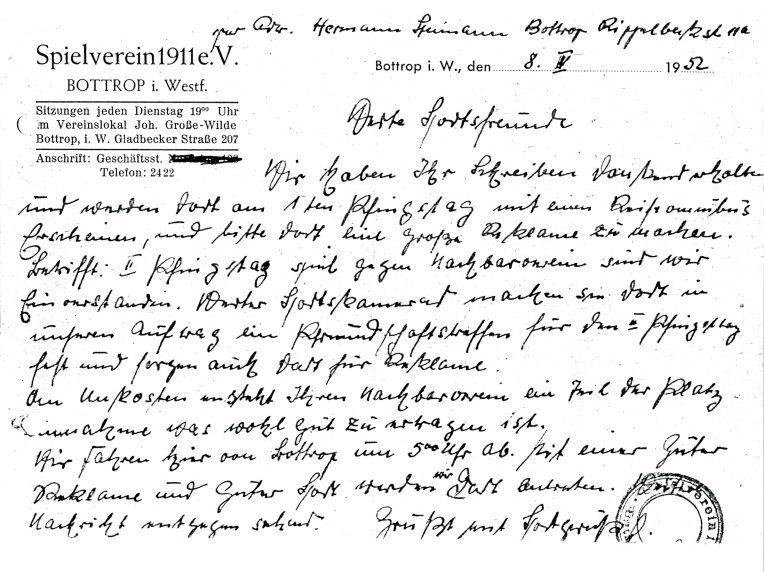 per Adr. Hermann Heimann Bottrop
Spielverein 1911 e.V.
BOTTROP i. Westf.
Bottrop i. W., den 8. IV 1952
Sitzungen jeden Dienstag 19⁰⁰ Uhr
im Vereinslokal Joh. Große-Wilde
Bottrop, i. W. Gladbecker Straße 207
Anschrift: Geschäftsst.
Telefon: 2422
Werte Sportsfreunde
Wir haben Ihr Schreiben dankend erhalten
und werden dort am 1ten Pfingstag mit einen Reiseomnibus
Erscheinen, und bitte dort eine große Reklame zu machen.
Betrifft: II Pfingstag spiel gegen Nachbarverein sind wir
Einverstanden. Werter Sportskamerad machen sie dort in
unseren Auftrag ein Freundschaftstreffen für den II Pfingstag
fest und sorgen auch dort für Reklame.
An Unkosten entsteht Ihren Nachbarverein ein Teil der Platz
einnahme was wohl gut zu ertragen ist.
Wir fahren hier von Bottrop um 5⁰⁰ Uhr ab. Mit einer Guter
Reklame und Guter Sport werden wir dort antreten.
Nachricht entgegen sehend. Grüßt mit Sportgruß
Spielverein